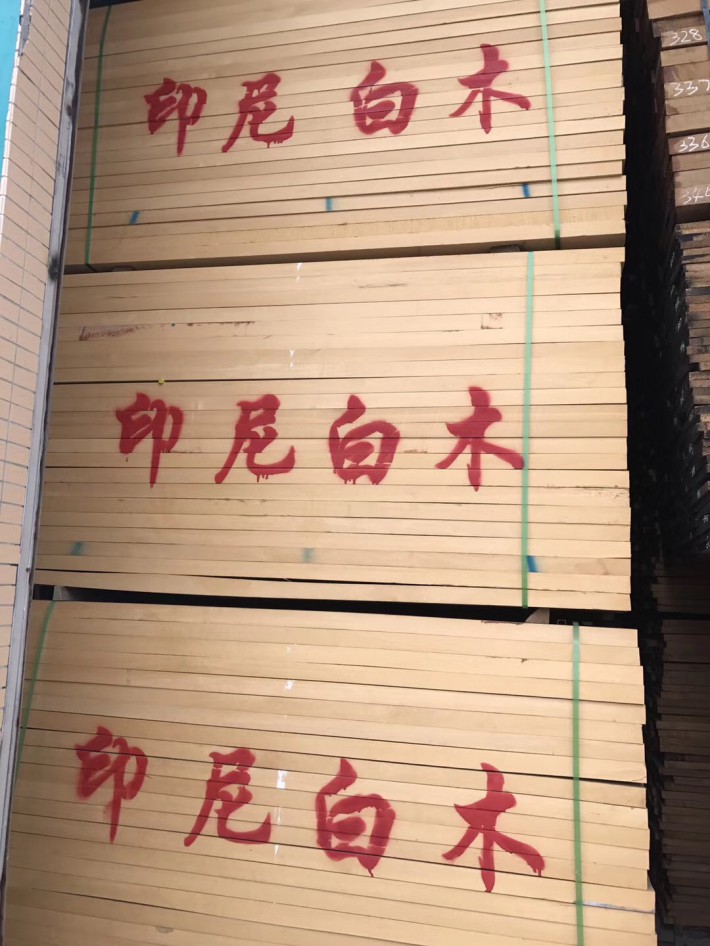 印尼白木
印尼白木
印尼白木
328
337
336